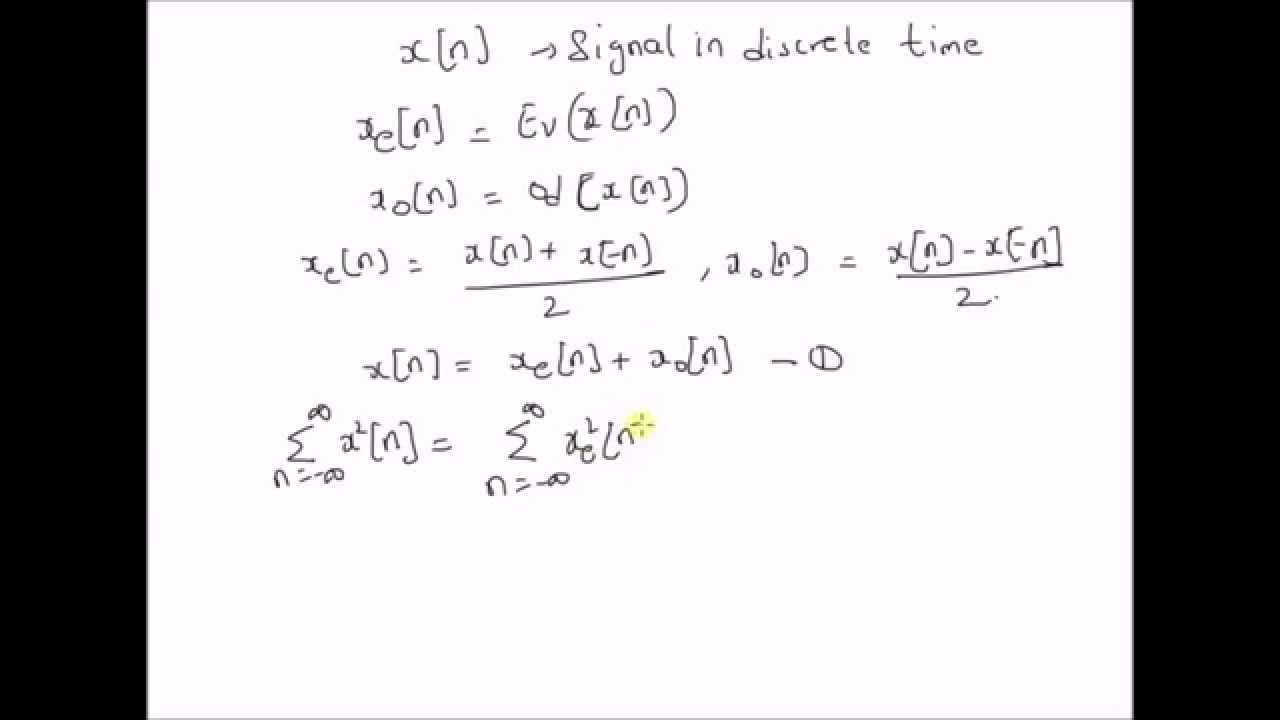 x[n] → Signal in discrete time
xe[n] = Ev(x[n])
xo[n] = Od[x[n])
xe[n] = x[n] + x[-n] / 2 , xo[n] = x[n] - x[-n] / 2.
x[n] = xe[n] + xo[n] — ①
∞∑n=-∞ x²[n] = ∞∑n=-∞ xe²[n